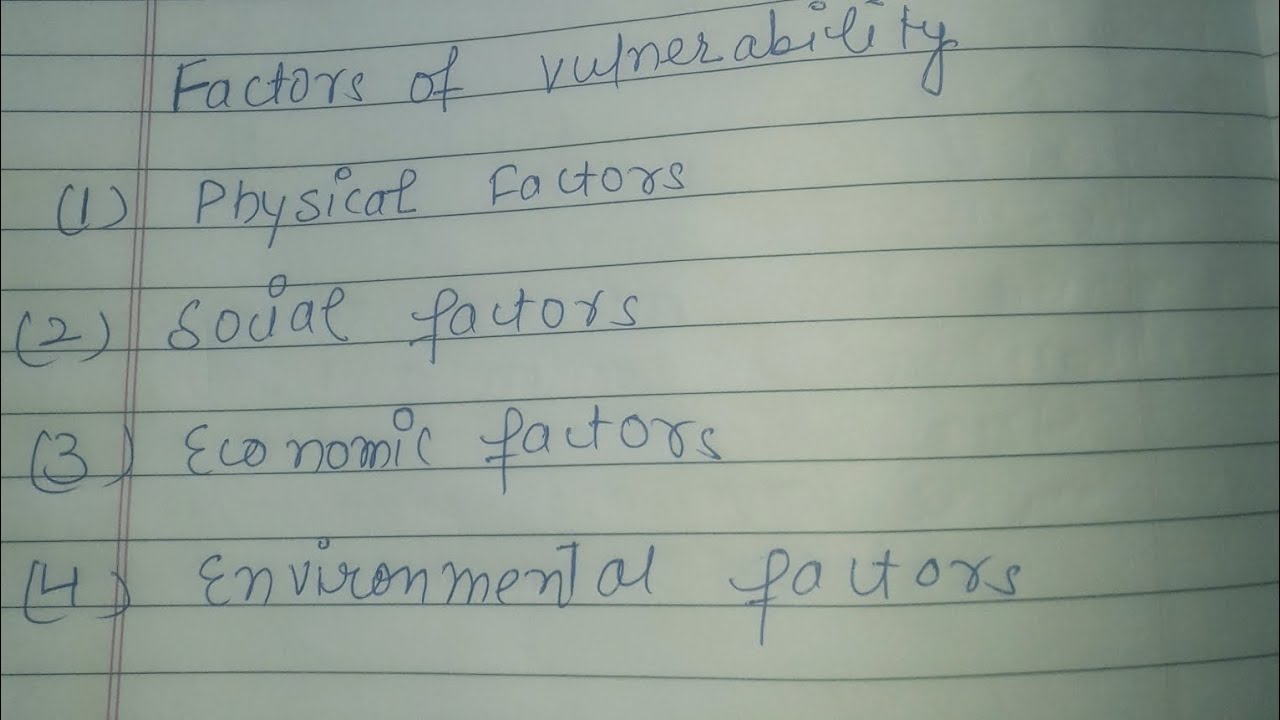 Factors of vulnerability
(1) Physical Factors
(2) Social factors
(3) Economic factors
(4) Environmental factors